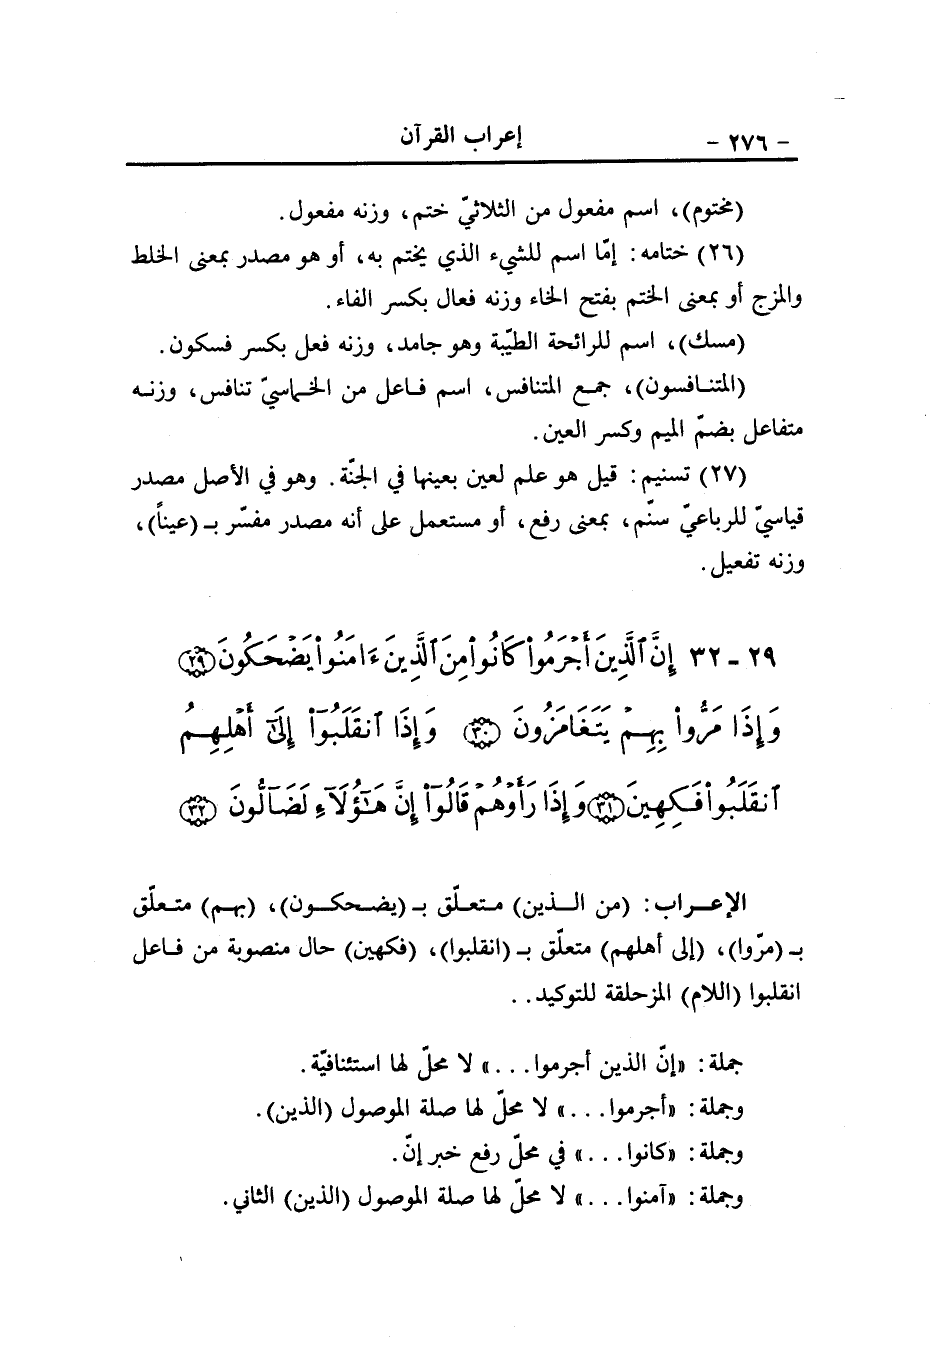 - ٢٧٦ -
إعراب القرآن
(مختوم)، اسم مفعول من الثلاثيّ ختم، وزنه مفعول.
(٢٦) ختامه: إمّا اسم للشيء الذي يختم به، أو هو مصدر بمعنى الخلط
والمزج أو بمعنى الختم بفتح الخاء وزنه فعال بكسر الفاء.
(مسك)، اسم للرائحة الطيّبة وهو جامد، وزنه فعل بكسر فسكون.
(المتنـافسون)، جمـع المتنافس، اسم فـاعل من الخـماسيّ تنافس، وزنـه
متفاعل بضمّ الميم وكسر العين.
(٢٧) تسنيم: قيل هو علم لعين بعينها في الجنّة. وهو في الأصل مصدر
قياسيّ للرباعيّ سنّم، بمعنى رفع، أو مستعمل على أنه مصدر مفسّر بـ (عيناً)،
وزنه تفعيل.
٢٩ - ٣٢ إِنَّ ٱلَّذِينَ أَجْرَمُوا۟ كَانُوا۟ مِنَ ٱلَّذِينَ ءَامَنُوا۟ يَضْحَكُونَ ٢٩
وَإِذَا مَرُّوا۟ بِهِمْ يَتَغَامَزُونَ ٣٠ وَإِذَا ٱنقَلَبُوٓا۟ إِلَىٰٓ أَهْلِهِمُ
ٱنقَلَبُوا۟ فَكِهِينَ ٣١ وَإِذَا رَأَوْهُمْ قَالُوٓا۟ إِنَّ هَـٰٓؤُلَآءِ لَضَآلُّونَ ٣٢
الإعـــراب: (من الـــذين) متـعلّق بـ (يضـحكـون)، (بهـم) متـعلّق
بـ (مرّوا)، (إلى أهلهم) متعلّق بـ (انقلبوا)، (فكهين) حال منصوبة من فـاعل
انقلبوا (اللام) المزحلقة للتوكيد..
جملة: «إنّ الذين أجرموا...» لا محلّ لها استئنافيّة.
وجملة: «أجرموا...» لا محلّ لها صلة الموصول (الذين).
وجملة: «كانوا...» في محلّ رفع خبر إنّ.
وجملة: «آمنوا...» لا محلّ لها صلة الموصول (الذين) الثاني.